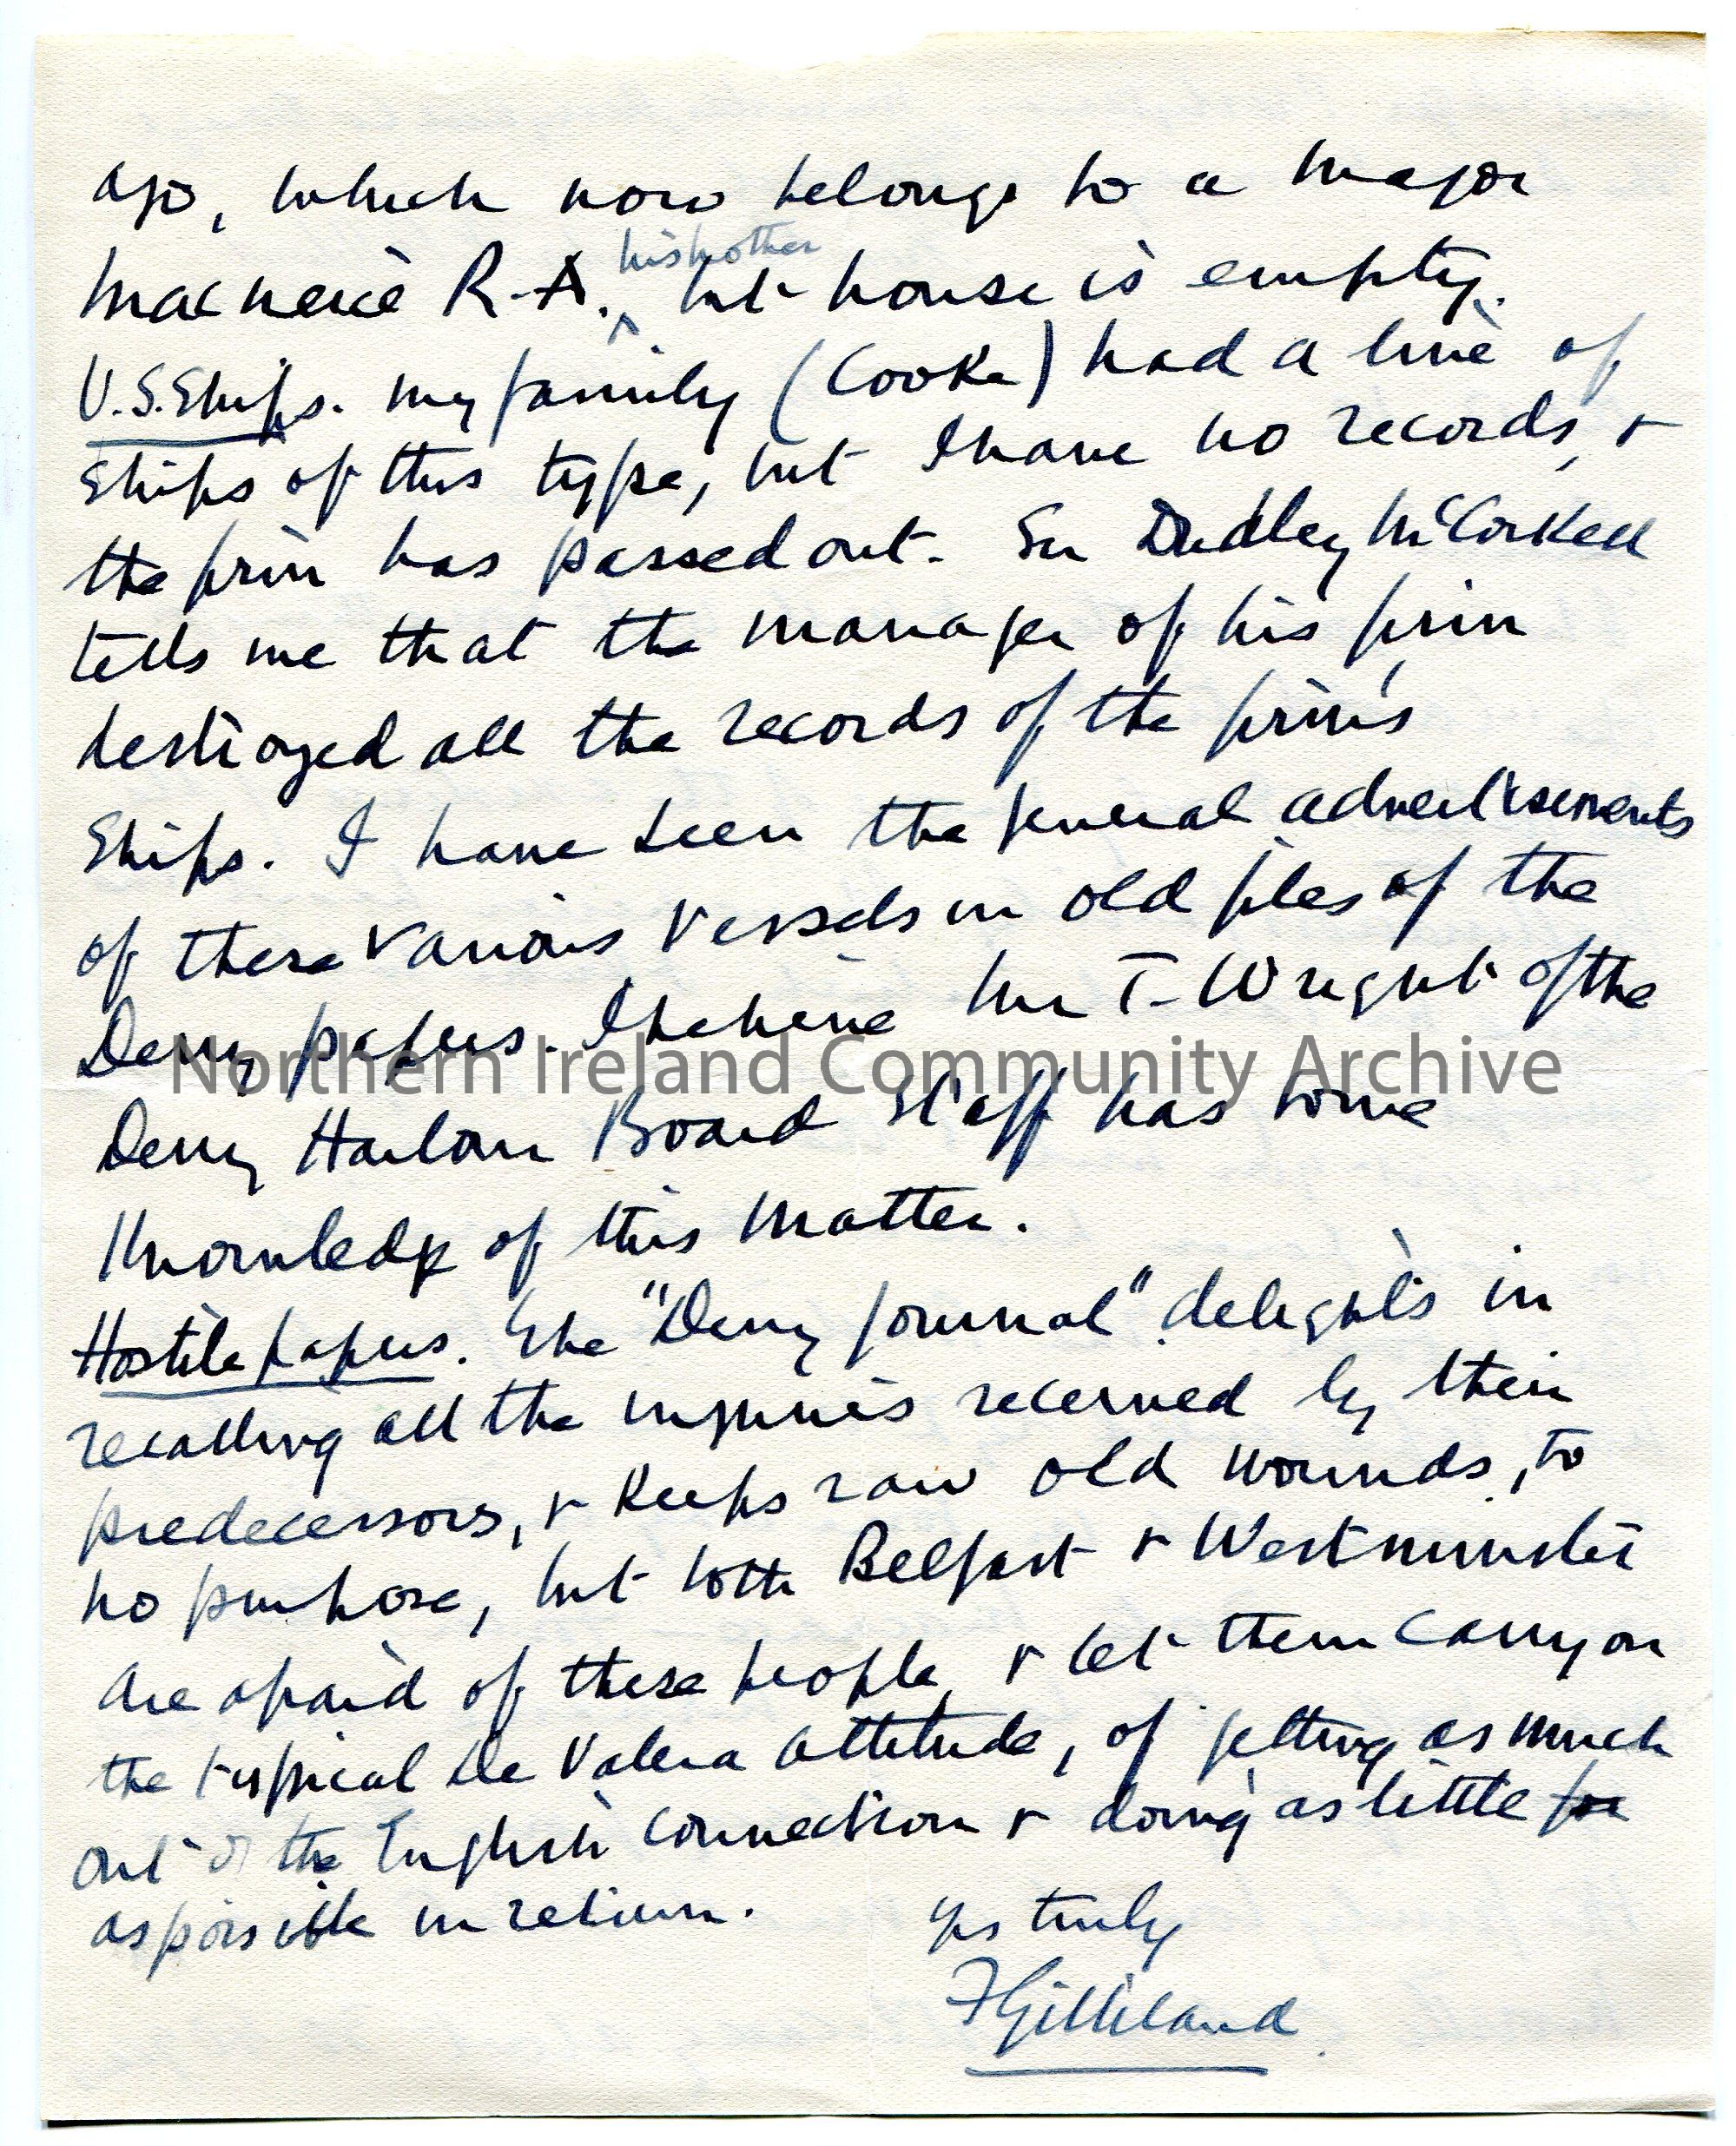 ago, which now belongs to a Major
Macneice R.A. his mother but house is empty.
U.S. Ships. My family (Cooke) had a line of
Ships of this type, but I have no records, &
the firm has passed out. Sir Dudley McCorkell
tells me that the manager of his firm
destroyed all the records of the firm's
Ships. I have seen the several advertisements
of these various vessels in old files of the
Derry papers. I believe Mr T. Wright of the
Derry Harbour Board Staff has some
Knowledge of this matter.
Hostile papers. The "Derry Journal" delights in
recalling all the injuries received by their
predecessors, & keeps raw old wounds, to
no purpose, but both Belfast & Westminster
are afraid of these people, & let them carry on
the typical De Valera attitude, of getting as much
out of the English connection & doing as little
as possible in return.
Yrs truly
F Gilliland
Northern Ireland Community Archive